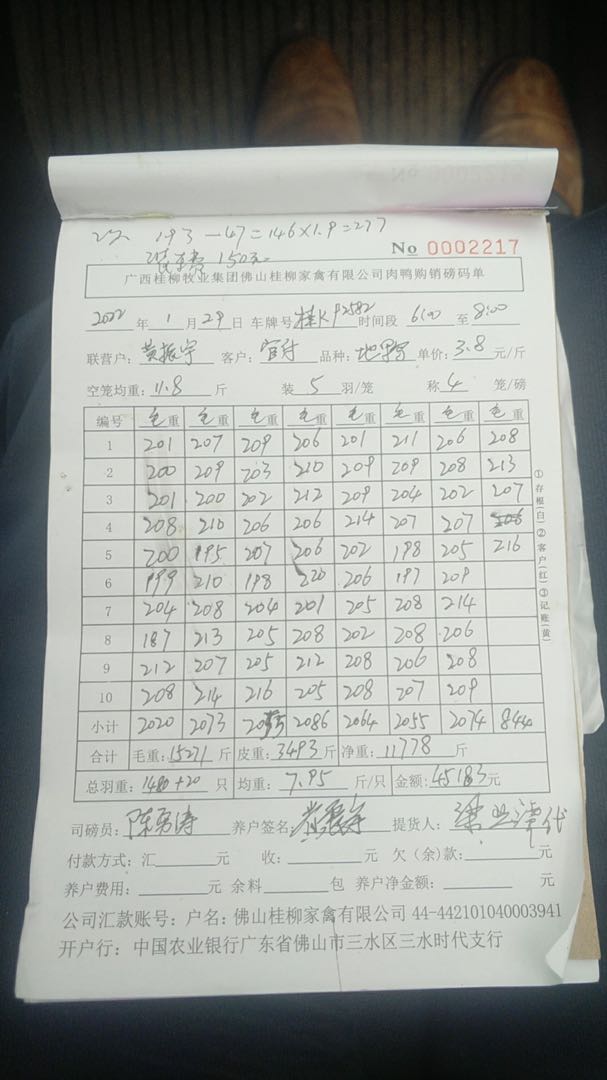 193-47=146×1.9=277
装车费 150元
No 0002217
广西桂柳牧业集团佛山桂柳家禽有限公司肉鸭购销磅码单
2022年1月29日 车牌号桂KP2582时间段 6:00 至 8:00
联营户: 黄振宇 客户: 品种: 单价: 3.8 元/斤
空笼均重: 11.8 斤 装 5 羽/笼 称 4 笼/磅
编号 毛重 毛重 毛重 毛重 毛重 毛重 毛重 毛重
1 201 207 209 206 201 211 206 208
2 200 209 203 210 209 209 208 213
3 201 200 202 212 209 204 202 207
4 208 210 206 206 214 207 207
5 200 195 207 206 202 198 205 216
6 199 210 198 220 206 197 209
7 204 208 204 201 205 208 214
8 187 213 205 208 202 208 206
9 212 207 205 212 208 206 208
10 208 214 216 205 208 207 209
小计 2020 2073 2055 2086 2064 2055 2074 844
合计 毛重: 15271 斤 皮重: 3493 斤 净重: 11778 斤
总羽重: 1480+20 只 均重: 7.95 斤/只 金额: 45183元
司磅员: 陈勇涛 养户签名: 黄振宇 提货人: 代
付款方式: 汇 元 收: 元 欠(余)款: 元
养户费用: 元 余料 包 养户净金额: 元
公司汇款账号: 户名: 佛山桂柳家禽有限公司 44-442101040003941
开户行: 中国农业银行广东省佛山市三水区三水时代支行
①存根(白)②客户(红)③记账(黄)
No 0002218